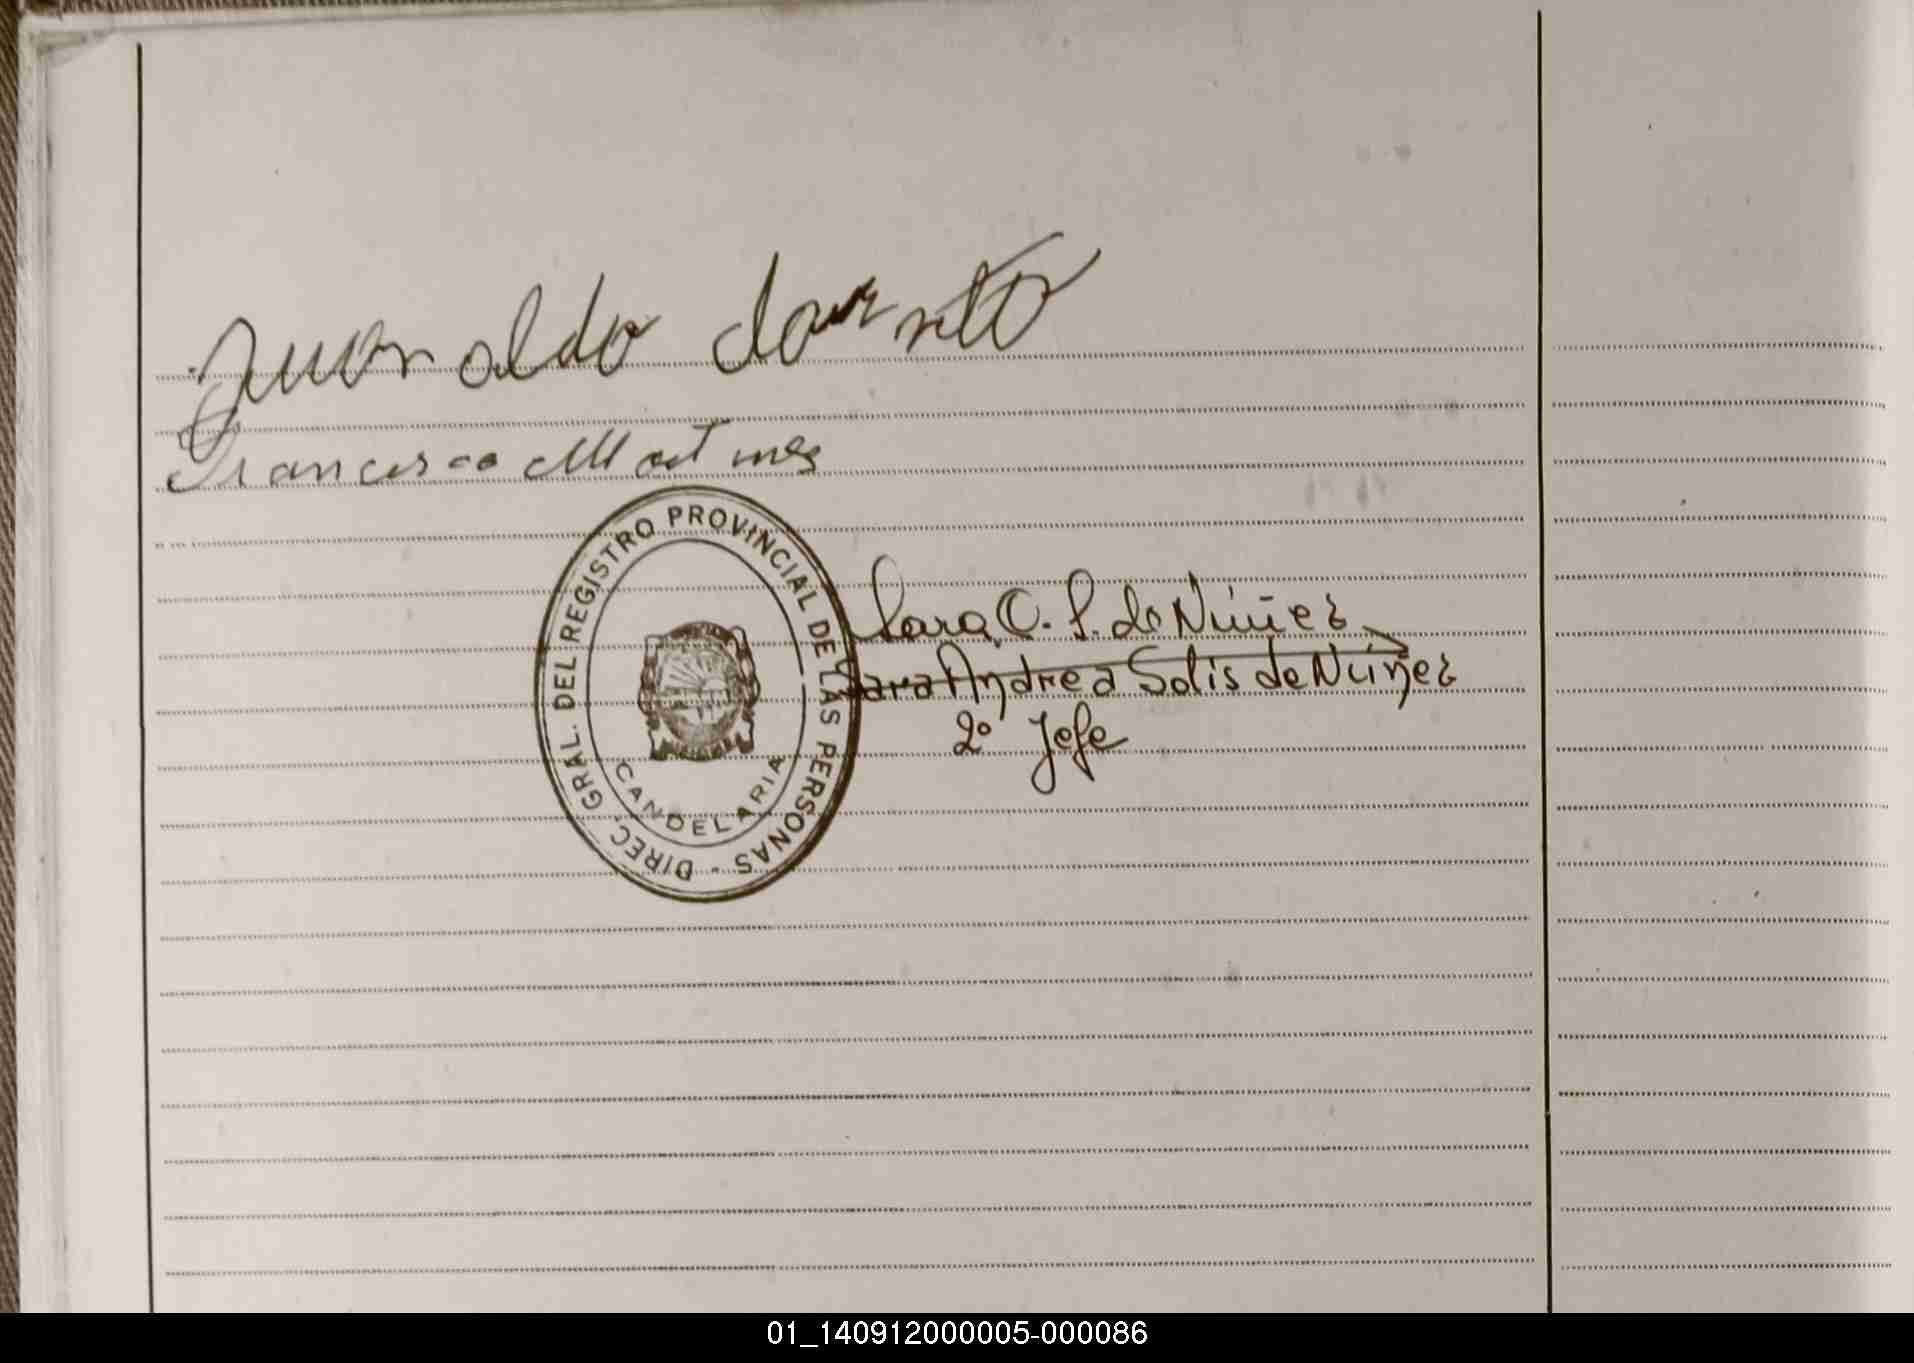 Francisco Martines
DIREC. GRAL. DEL REGISTRO PROVINCIAL DE LAS PERSONAS -
CANDELARIA
Sara A. S. de Núñez
Sara Andrea Solis de Núñez
2º Jefe
01_140912000005-000086